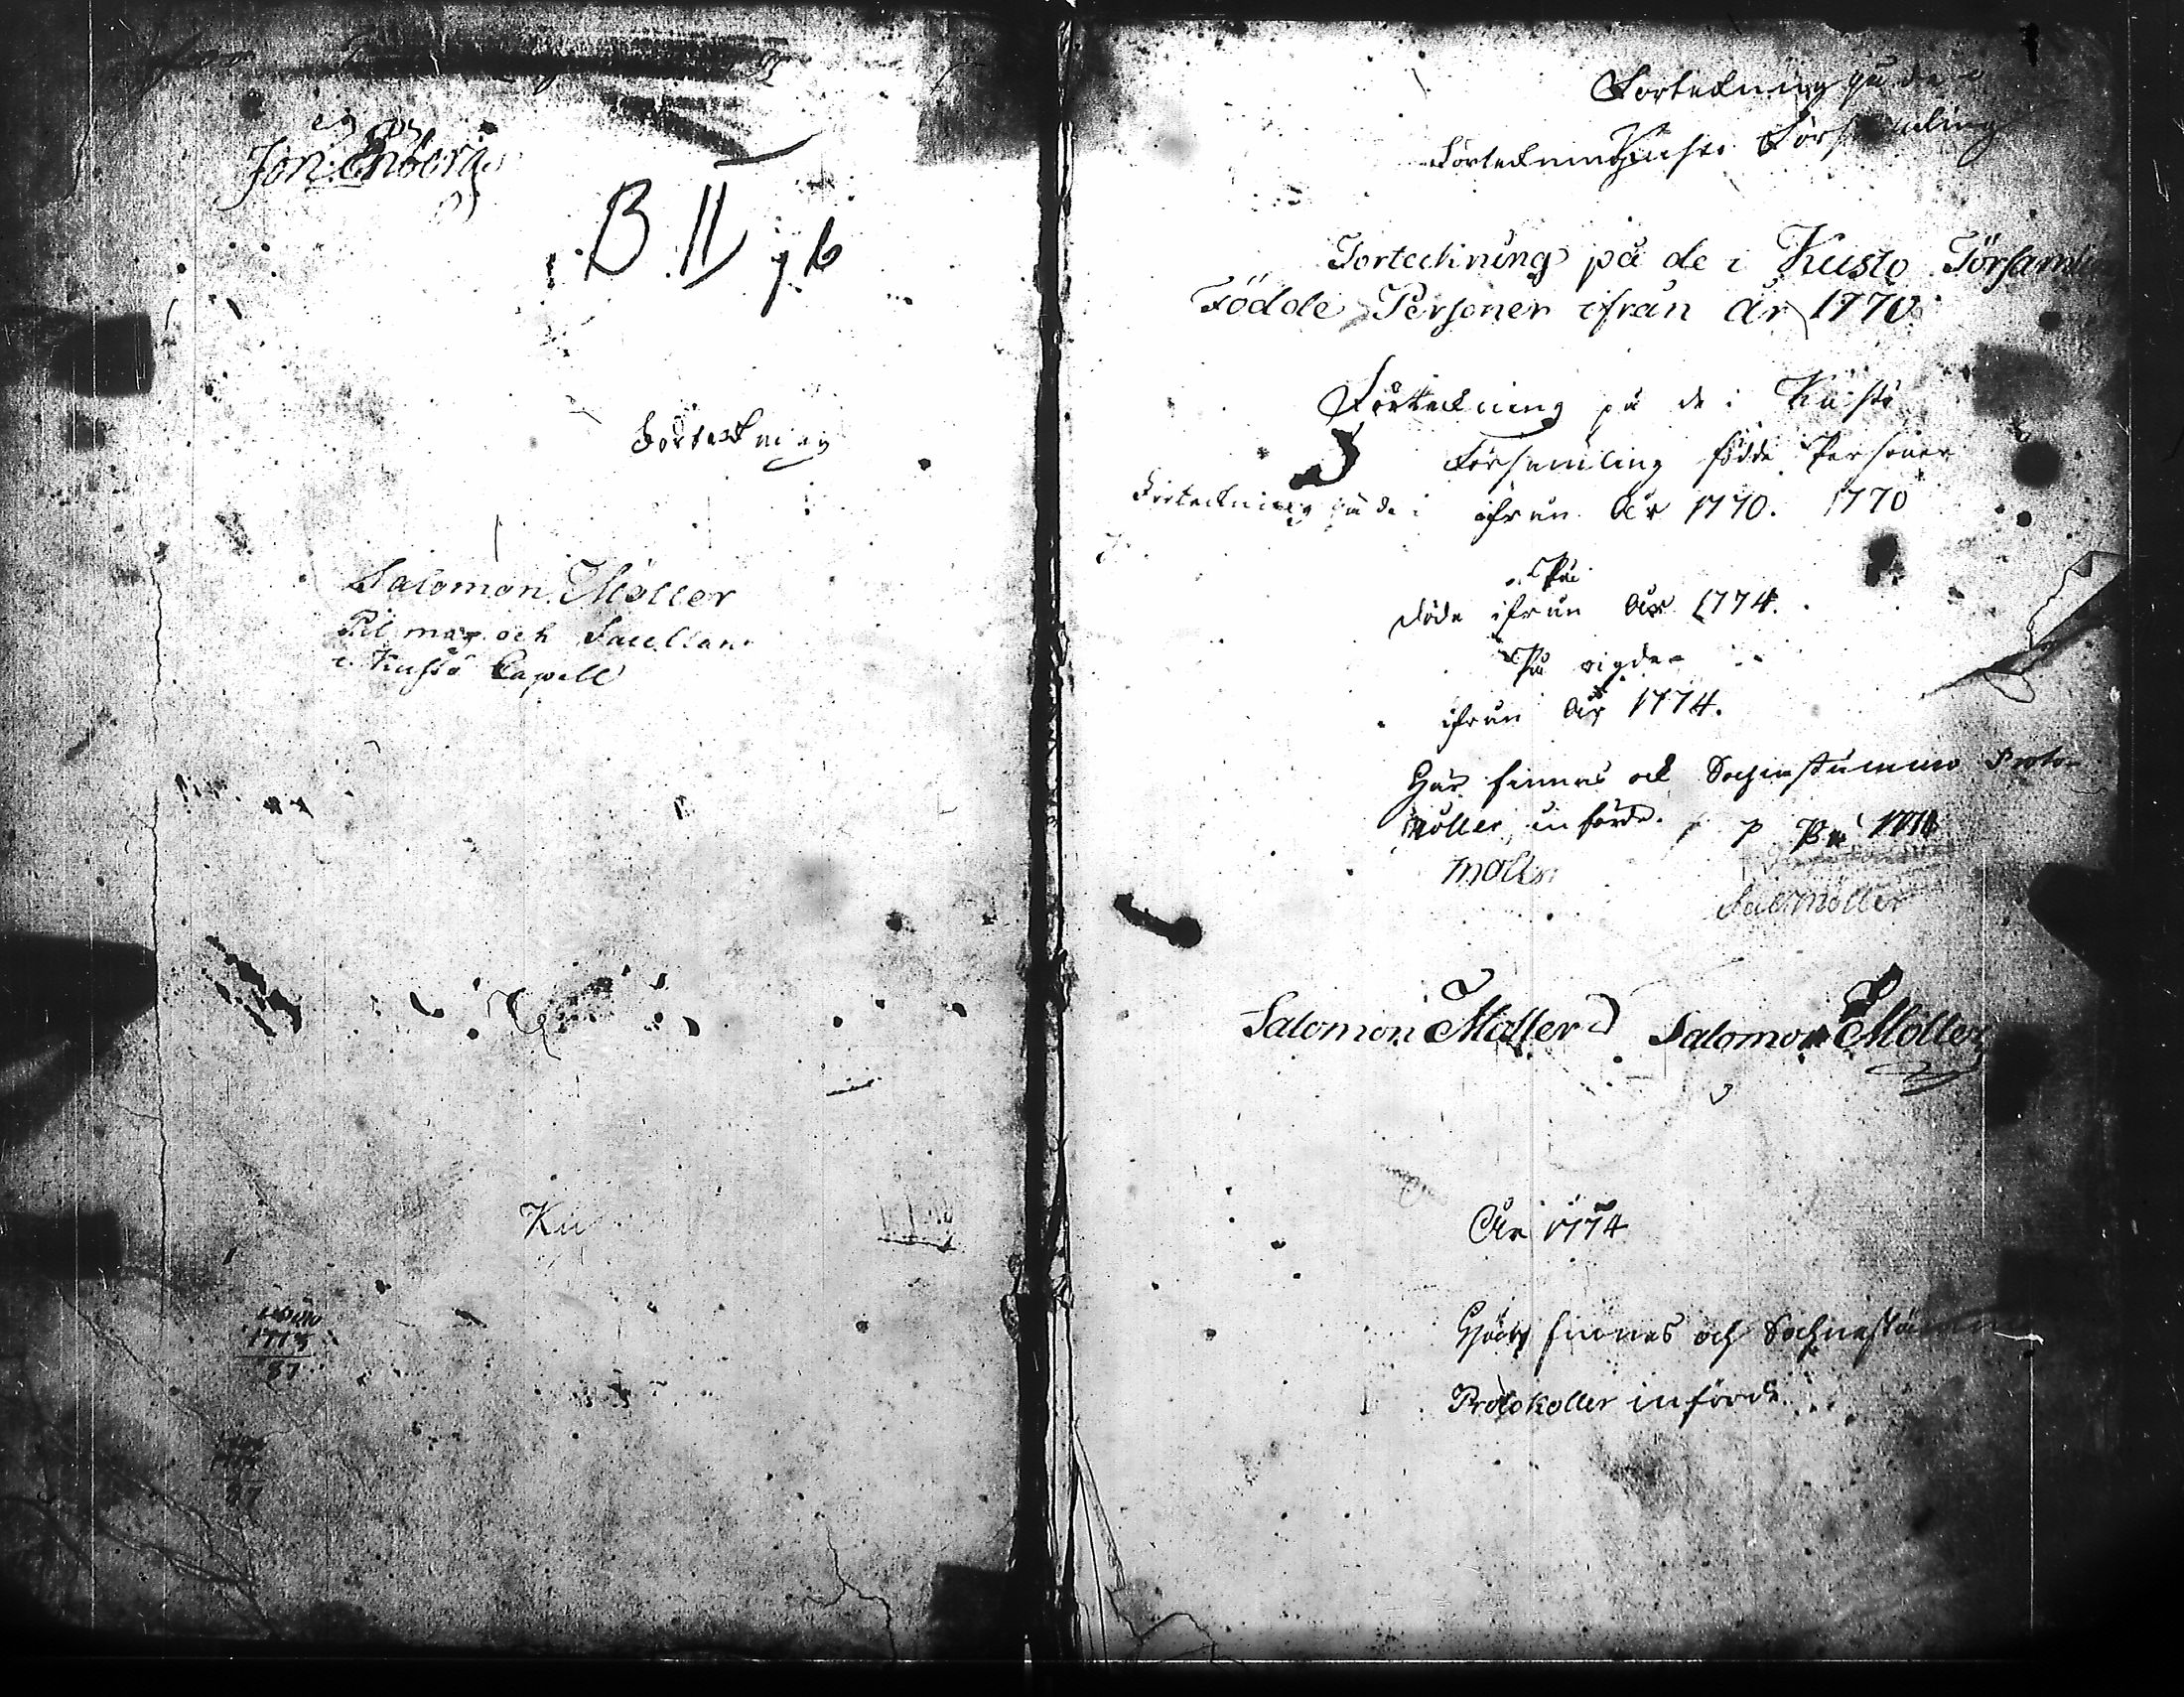 Jon Enberg
B II 76
Forteckning
Salomon Möller
och
i Kustö Capell
Ku
1713
87
Forteckning på de i
Förteckning Kusto Församling
Forteckning på de i Kusto Församling
Födde Personer ifrån År 1770
Förteckning på de i Kustö
Församling födde Personer
Förteckning på de i ifrån År 1770. 1770
På
döde ifrån År 1774.
På vigde
ifrån År 1774.
Här finnas ock Sochnestämmo Proto
koller införde.
Möller
Sal Möller
Salomon Möller Salomon Möller
År 1774
finnes och Sochnestämmo
Protokoller införde